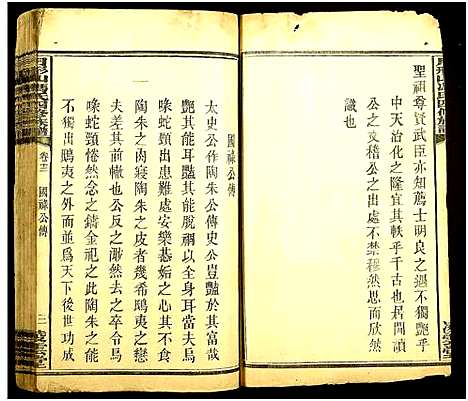 月形山馮氏四修族譜
聖祖尊賢武臣亦知薦士明良之遇不獨豔乎
中天治化之隆宜其軼乎千古也居閒讀
公之文稽公之出處不禁穆然思僾然
識也
國祿公傳
太史公作陶朱公傳史公豈豔於其富哉
豔其能耳豔其能脫禍以全身耳當夫烏
喙蛇頸出患難處安樂惎妬之心其于
陶朱之肉寢陶朱之皮者幾希鴟夷之戀
去其前轍也公反之辭然去之卒令烏
喙蛇頸惓然念之鑄金祀之此陶朱之能
不獨出鴟夷之外並為天下後世功成
卷十二
國祿公傳